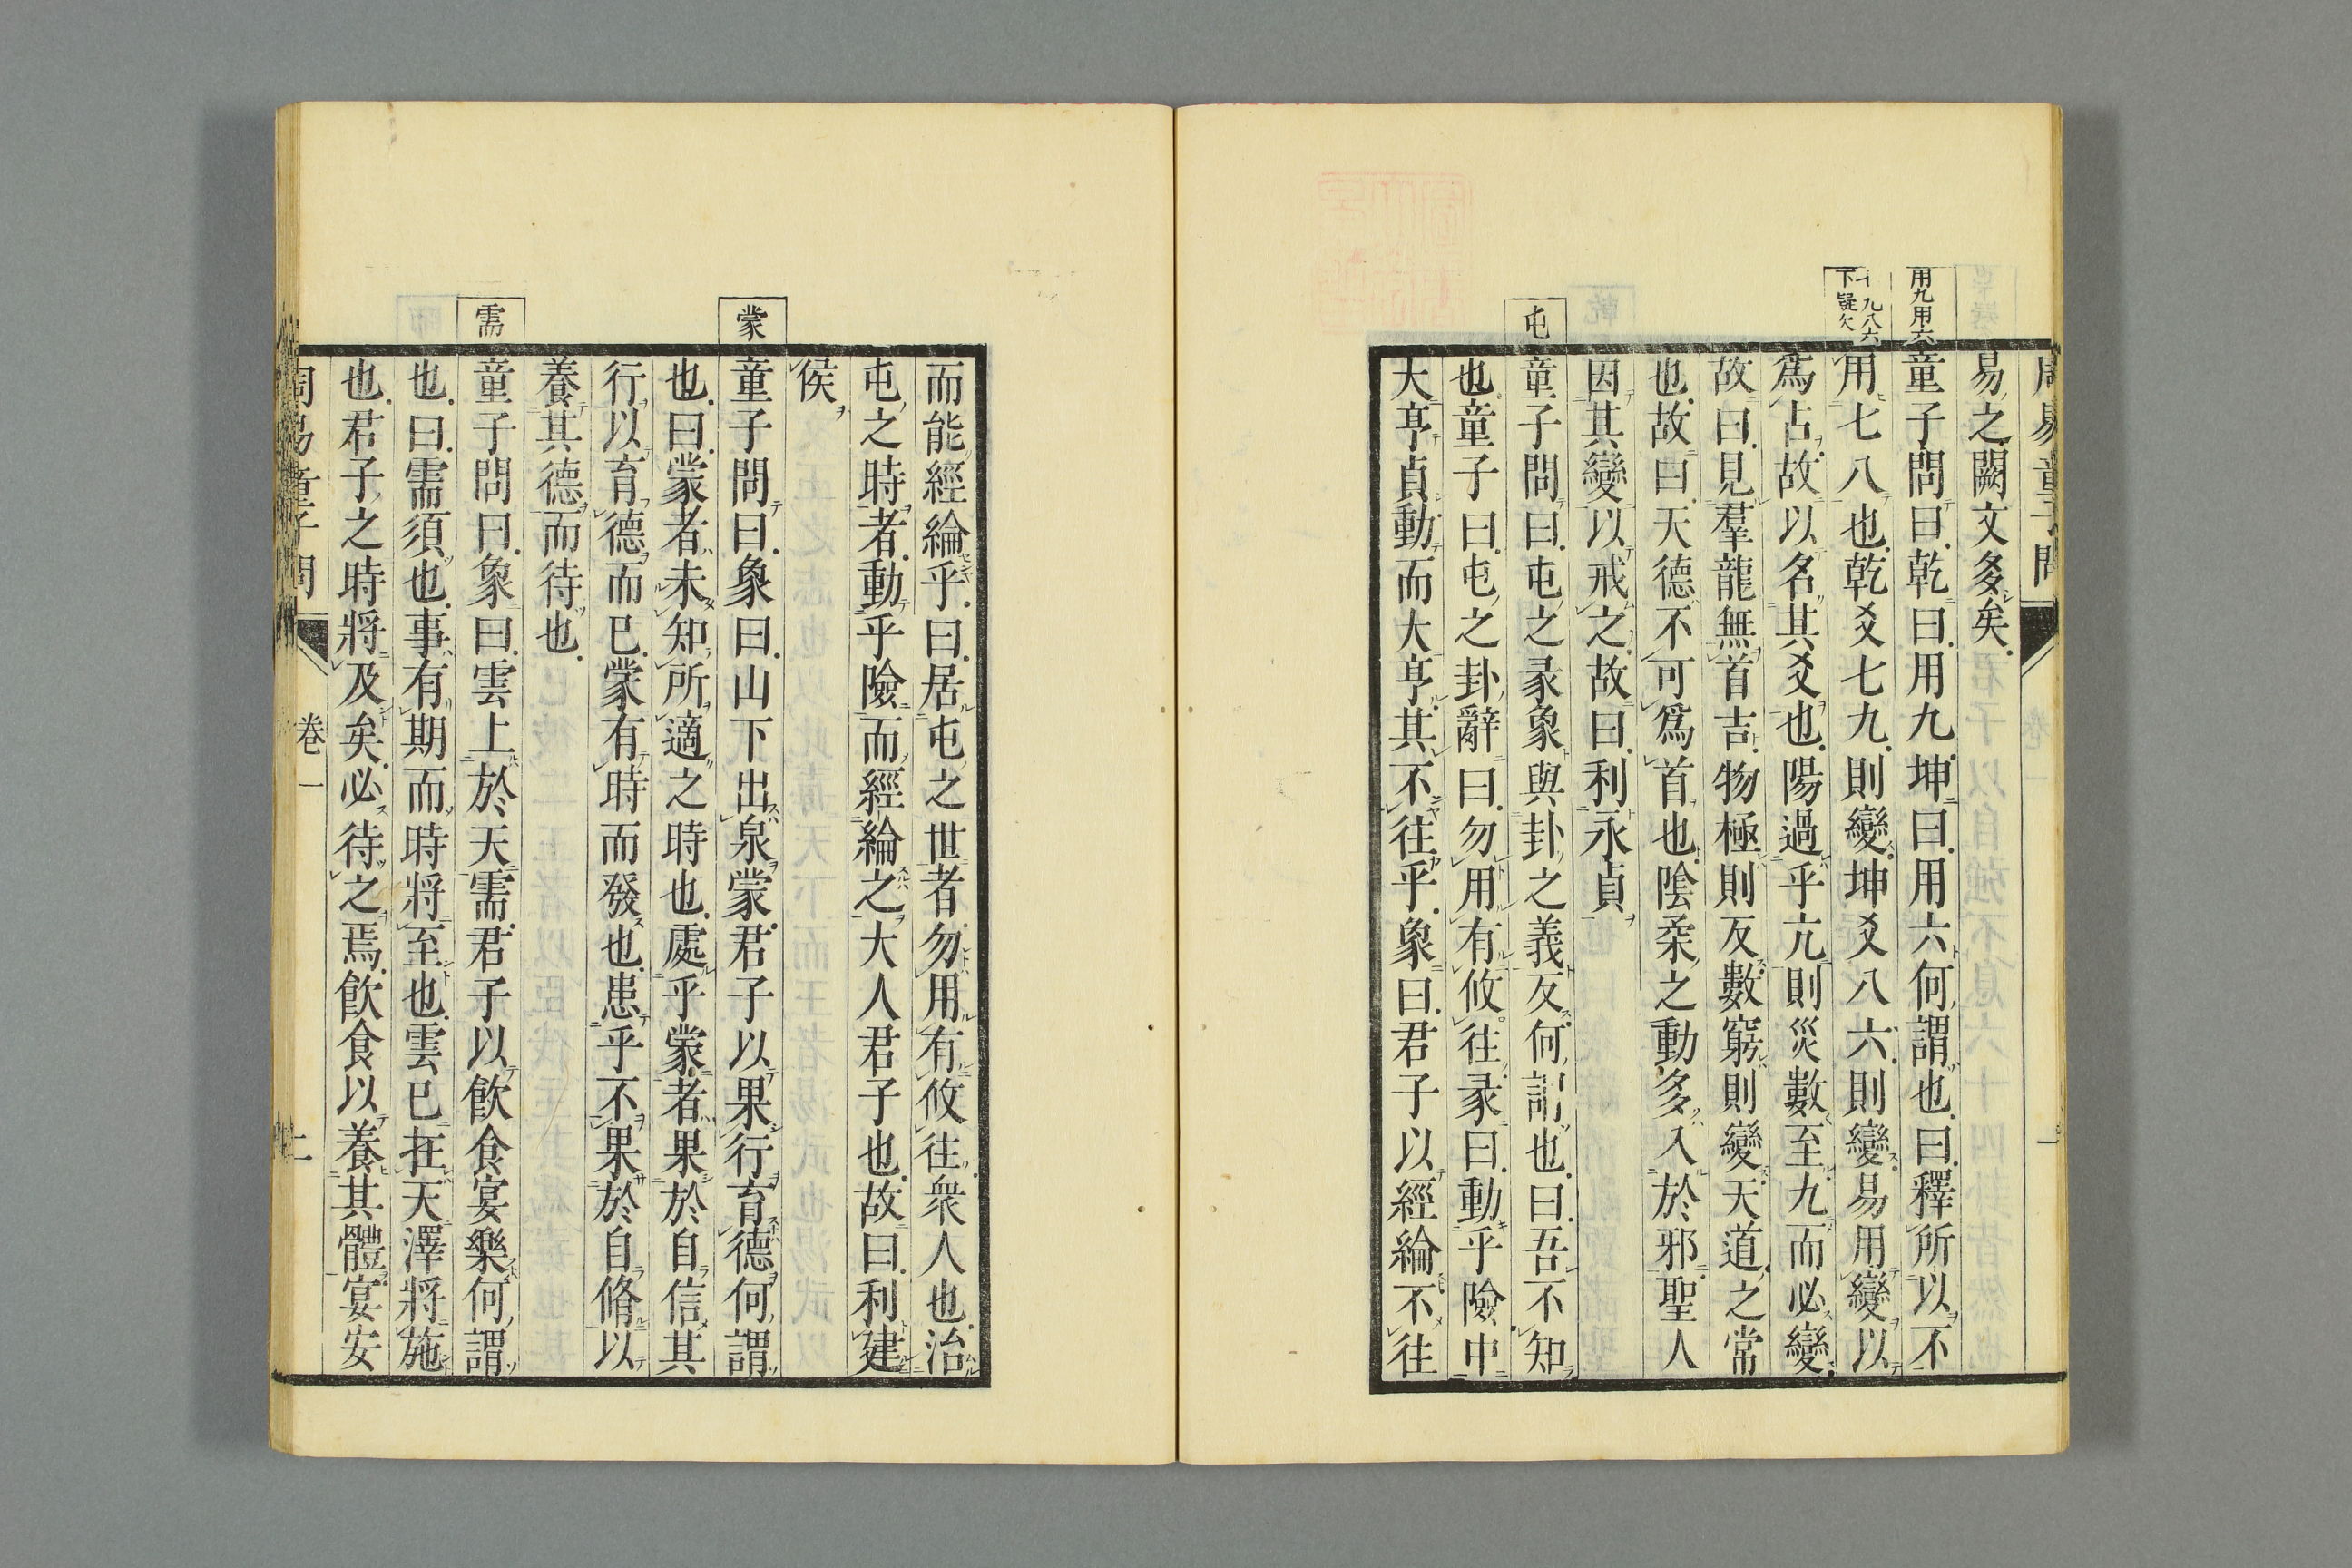 周易童子問
一
易之闕文多矣
用九用六
童子問曰乾曰用九坤曰用六何謂也曰釋所以不
九八六
下疑欠
用七八也乾爻七九則變坤爻八六則變易用變以
爲占故以名其爻也陽過乎亢則災數至九而必變
故曰見羣龍無首吉物極則反數窮則變天道之常
也故曰天德不可爲首也陰柔之動多入於邪聖人
因其變以戒之故曰利永貞
屯
童子問曰屯之彖象與卦之義反何謂也曰吾不知
也童子曰屯之卦辭曰勿用有攸往彖曰動乎險中
大亨貞動而大亨其不往乎象曰君子以經綸不往
而能經綸乎曰居屯之世者勿用有攸往衆人也治
屯之時者動乎險而經綸之大人君子也故曰利建
侯
蒙
童子問曰象曰山下出泉蒙君子以果行育德何謂
也曰蒙者未知所適之時也處乎蒙者果於自信其
行以育德而已蒙有時而發也患乎不果於自脩以
養其德而待也
需
童子問曰象曰雲上於天需君子以飮食宴樂何謂
也曰需須也事有期而時將至也雲已在天澤將施
也君子之時將及矣必待之焉飮食以養其體宴安
周易童子問
卷一
二